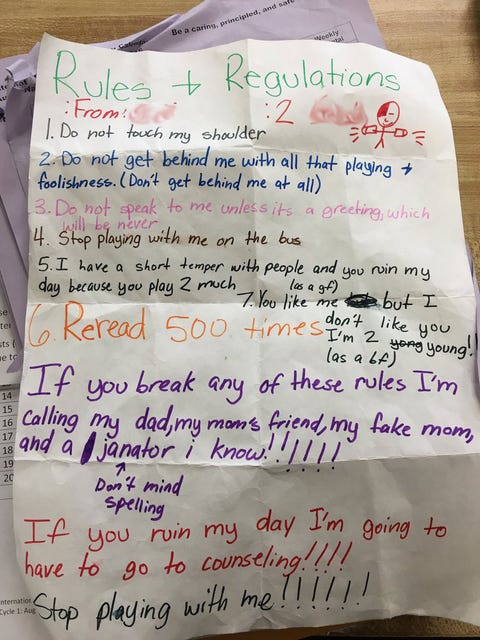 Be a caring, principled, and safe
Weekly
Rules + Regulations
:From:
:2
1. Do not touch my shoulder
2. Do not get behind me with all that playing +
foolishness. (Don't get behind me at all)
3. Do not speak to me unless its a greeting, which
will be never
4. Stop playing with me on the bus
5. I have a short temper with people and you ruin my
day because you play 2 much
6. Reread 500 times
(as a gf)
7. You like me but I
don't like you
I'm 2 yong young!!
(as a bf)
If you break any of these rules I'm
calling my dad, my mom's friend, my fake mom,
and a janator i know!!!!!!!
Don't mind
spelling
If you ruin my day I'm going to
have to go to counseling!!!!
Stop playing with me!!!!!!!
14
15
16
17
18
19
20
Cycle 1: Aug